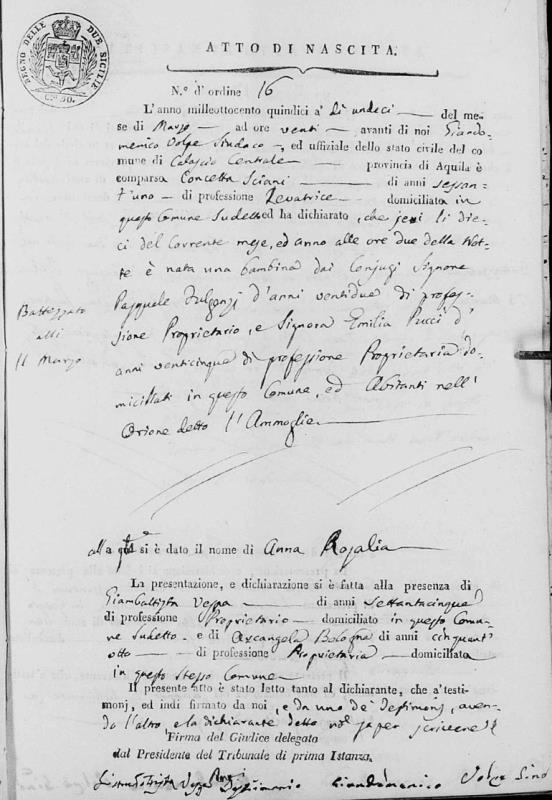 REGNO DELLE DUE SICILIE
ATTO DI NASCITA.
N.º d'ordine 16
L'anno milleottocento quindici a' dì undeci del me-
se di Marzo ad ore venti, avanti di noi Giando-
menico Volpe Sindaco, ed uffiziale dello stato civile del co
mune di Calascio Centrale provincia di Aquila è
comparsa Concetta Sciani di anni sessan-
t'uno di professione Levatrice domiciliata in
questo Comune Sudetto ed ha dichiarato, che jeri li die-
ci del Corrente mese, ed anno alle ore due della Not-
te è nata una bambina dai Conjugi Signore
Pasquale d'anni ventidue di profes-
sione Proprietario, e Signora Emilia Pucci d'
anni venticinque di professione Proprietaria do-
miciliati in questo Comune, ed Abitanti nell'
Orione detto l'Ammoglie
Battezzata
alli
11 Marzo
alla qle si è dato il nome di Anna Rosalia
La presentazione, e dichiarazione si è fatta alla presenza di
Giambattista Vespa di anni Settantacinque
di professione Proprietario domiciliato in questo Comu-
ne Sudetto e di Arcangela Bologna di anni cinquant'
otto di professione Proprietaria domiciliata
in questo Stesso Comune
Il presente atto è stato letto tanto al dichiarante, che a' testi-
monj, ed indi firmato da noi, e da uno de' Testimonj, aven-
do l'altro, e la dichiarante detto non saper scrivere
Firma del Giudice delegato
dal Presidente del Tribunale di prima Istanza.
Giambattista Vespa Testimonio Giandomenico Volpe Sind